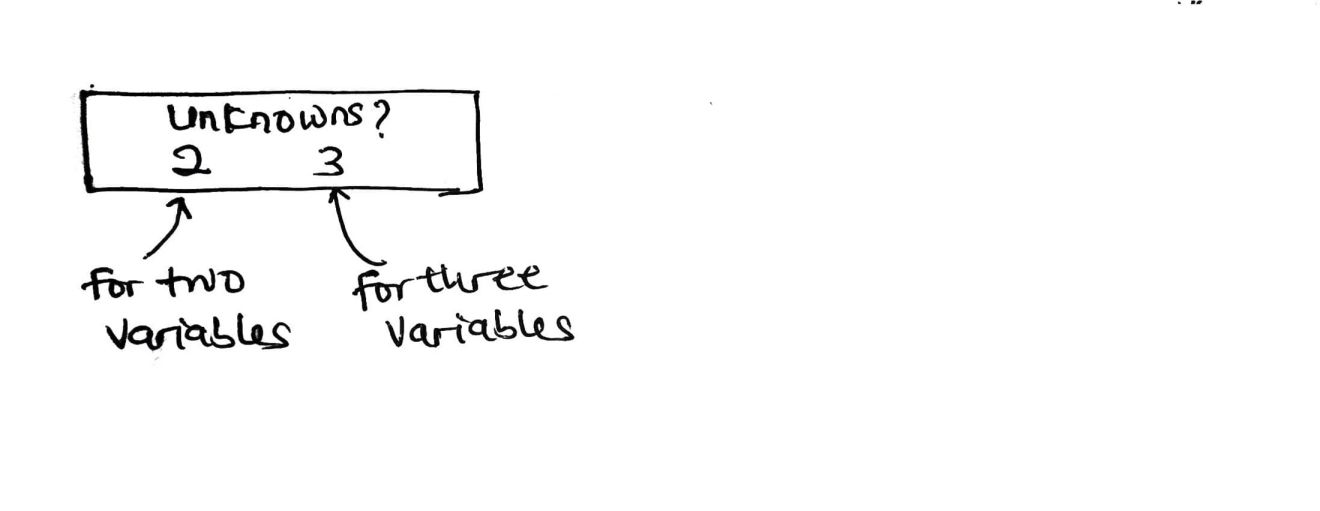 Unknowns?
2 3
for two
variables
for three
variables